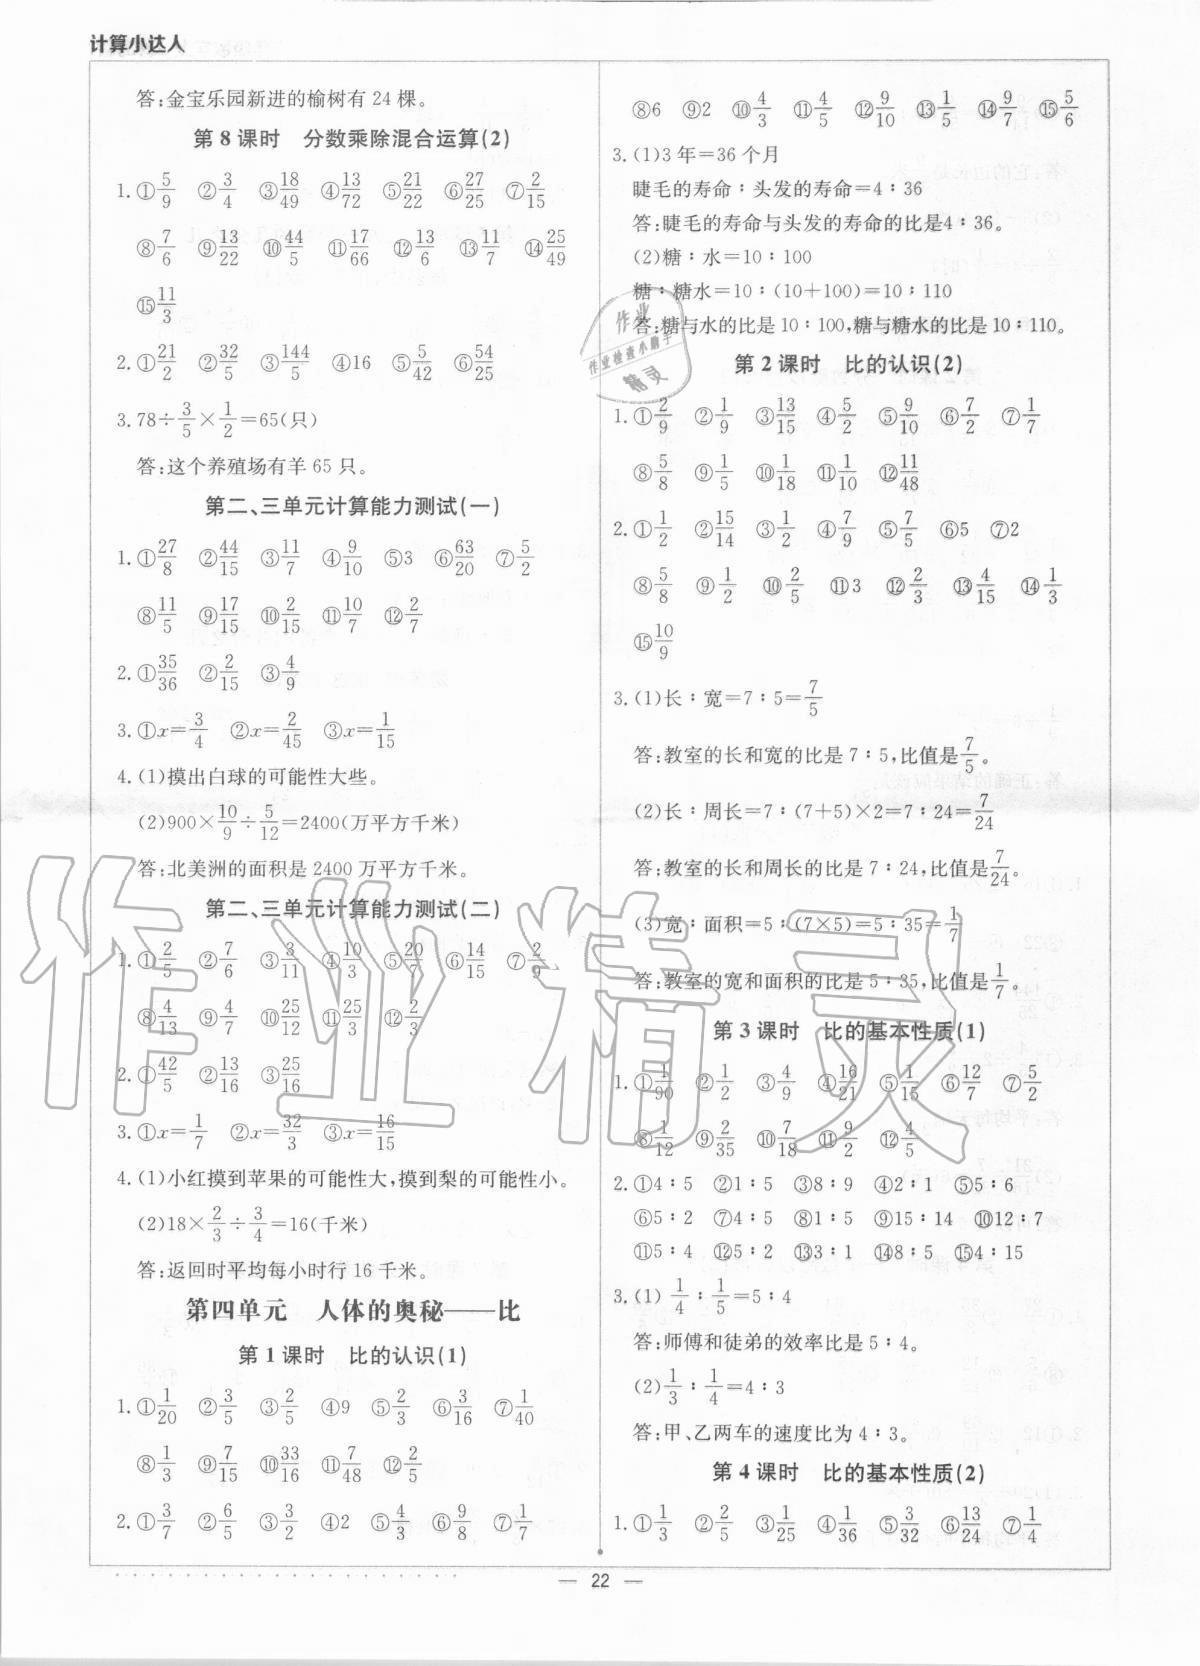 计算小达人
答:金宝乐园新进的榆树有 24 棵。
第 8 课时 分数乘除混合运算(2)
1. ①5/9 ②3/4 ③18/49 ④13/72 ⑤21/22 ⑥27/25 ⑦2/15
⑧7/6 ⑨13/22 ⑩44/5 ⑪17/66 ⑫13/6 ⑬11/7 ⑭25/49
⑮11/3
2. ①21/2 ②32/5 ③144/5 ④16 ⑤5/42 ⑥54/25
3. 78÷3/5×1/2=65(只)
答:这个养殖场有羊 65 只。
第二、三单元计算能力测试(一)
1. ①27/8 ②44/15 ③11/7 ④9/10 ⑤3 ⑥63/20 ⑦5/2
⑧11/5 ⑨17/15 ⑩2/15 ⑪10/7 ⑫2/7
2. ①35/36 ②2/15 ③4/9
3. ①x=3/4 ②x=2/45 ③x=1/15
4. (1)摸出白球的可能性大些。
(2)900×10/9÷5/12=2400(万平方千米)
答:北美洲的面积是 2400 万平方千米。
第二、三单元计算能力测试(二)
1. ①2/5 ②7/6 ③3/11 ④10/3 ⑤20/7 ⑥14/15 ⑦2/9
⑧4/13 ⑨4/7 ⑩25/12 ⑪25/3 ⑫2/3
2. ①42/5 ②13/16 ③25/16
3. ①x=1/7 ②x=32/3 ③x=16/15
4. (1)小红摸到苹果的可能性大,摸到梨的可能性小。
(2)18×2/3÷3/4=16(千米)
答:返回时平均每小时行 16 千米。
第四单元 人体的奥秘——比
第 1 课时 比的认识(1)
1. ①1/20 ②3/5 ③2/5 ④9 ⑤2/3 ⑥3/16 ⑦1/40
⑧1/3 ⑨7/15 ⑩33/16 ⑪7/48 ⑫2/5
2. ①3/7 ②6/5 ③3/2 ④2 ⑤4/3 ⑥9/8 ⑦1/7
⑧6 ⑨2 ⑩4/3 ⑪4/5 ⑫9/10 ⑬1/5 ⑭9/7 ⑮5/6
3. (1)3 年=36 个月
睫毛的寿命∶头发的寿命=4∶36
答:睫毛的寿命与头发的寿命的比是4∶36。
(2)糖∶水=10∶100
糖∶糖水=10∶(10+100)=10∶110
答:糖与水的比是 10∶100,糖与糖水的比是 10∶110。
第 2 课时 比的认识(2)
1. ①2/9 ②1/9 ③13/15 ④5/2 ⑤9/10 ⑥7/2 ⑦1/7
⑧5/8 ⑨1/5 ⑩1/18 ⑪1/10 ⑫11/48
2. ①1/2 ②15/14 ③1/2 ④7/9 ⑤7/5 ⑥5 ⑦2
⑧5/8 ⑨1/2 ⑩2/5 ⑪3 ⑫2/3 ⑬4/15 ⑭1/3
⑮10/9
3. (1)长∶宽=7∶5=7/5
答:教室的长和宽的比是 7∶5,比值是7/5。
(2)长∶周长=7∶(7+5)×2=7∶24=7/24
答:教室的长和周长的比是 7∶24,比值是7/24。
(3)宽∶面积=5∶(7×5)=5∶35=1/7
答:教室的宽和面积的比是 5∶35,比值是1/7。
第 3 课时 比的基本性质(1)
1. ①1/90 ②1/2 ③4/9 ④16/21 ⑤1/15 ⑥12/7 ⑦5/2
⑧1/12 ⑨2/35 ⑩7/18 ⑪9/2 ⑫4/5
2. ①4∶5 ②1∶5 ③8∶9 ④2∶1 ⑤5∶6
⑥5∶2 ⑦4∶5 ⑧1∶5 ⑨15∶14 ⑩12∶7
⑪5∶4 ⑫5∶2 ⑬3∶1 ⑭8∶5 ⑮4∶15
3. (1)1/4∶1/5=5∶4
答:师傅和徒弟的效率比是 5∶4。
(2)1/3∶1/4=4∶3
答:甲、乙两车的速度比为 4∶3。
第 4 课时 比的基本性质(2)
1. ①1/3 ②2/5 ③1/25 ④1/36 ⑤3/32 ⑥13/24 ⑦1/4
— 22 —
作业
作业检查小助手
精灵
作业精灵